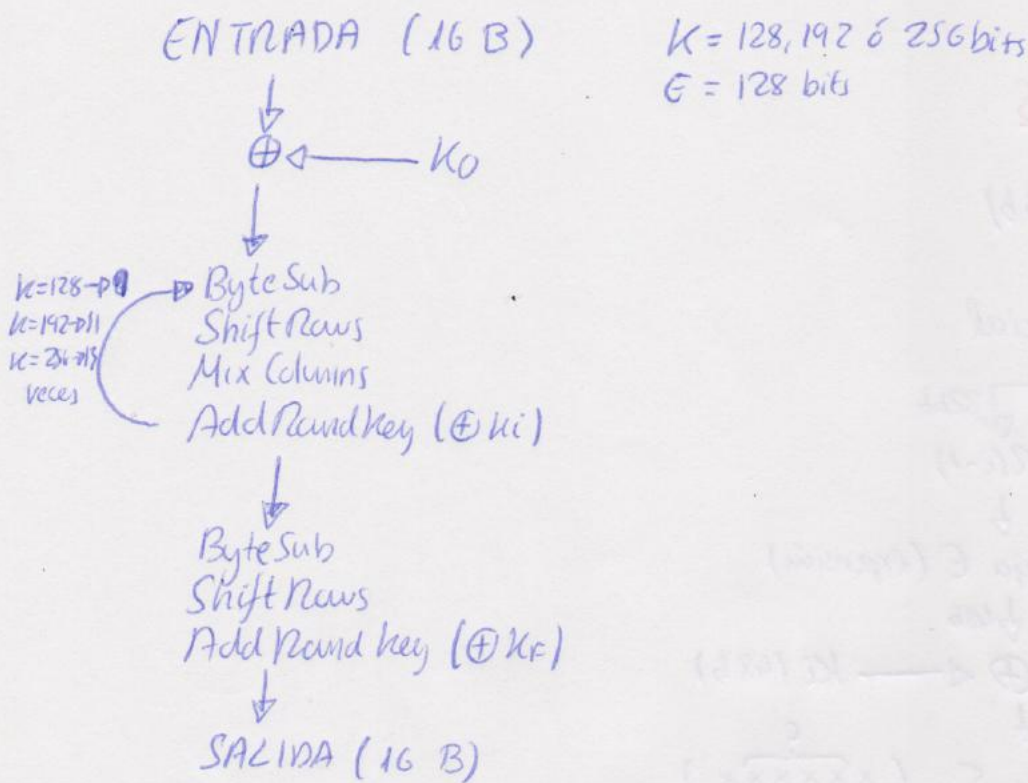 ENTRADA (16 B)
K = 128, 192 ó 256 bits
E = 128 bits
⊕ ← K0
K=128→9
K=192→11
K=256→13
veces
ByteSub
ShiftRows
Mix Columns
AddRoundKey (⊕ Ki)
ByteSub
ShiftRows
AddRoundKey (⊕ KF)
SALIDA (16 B)